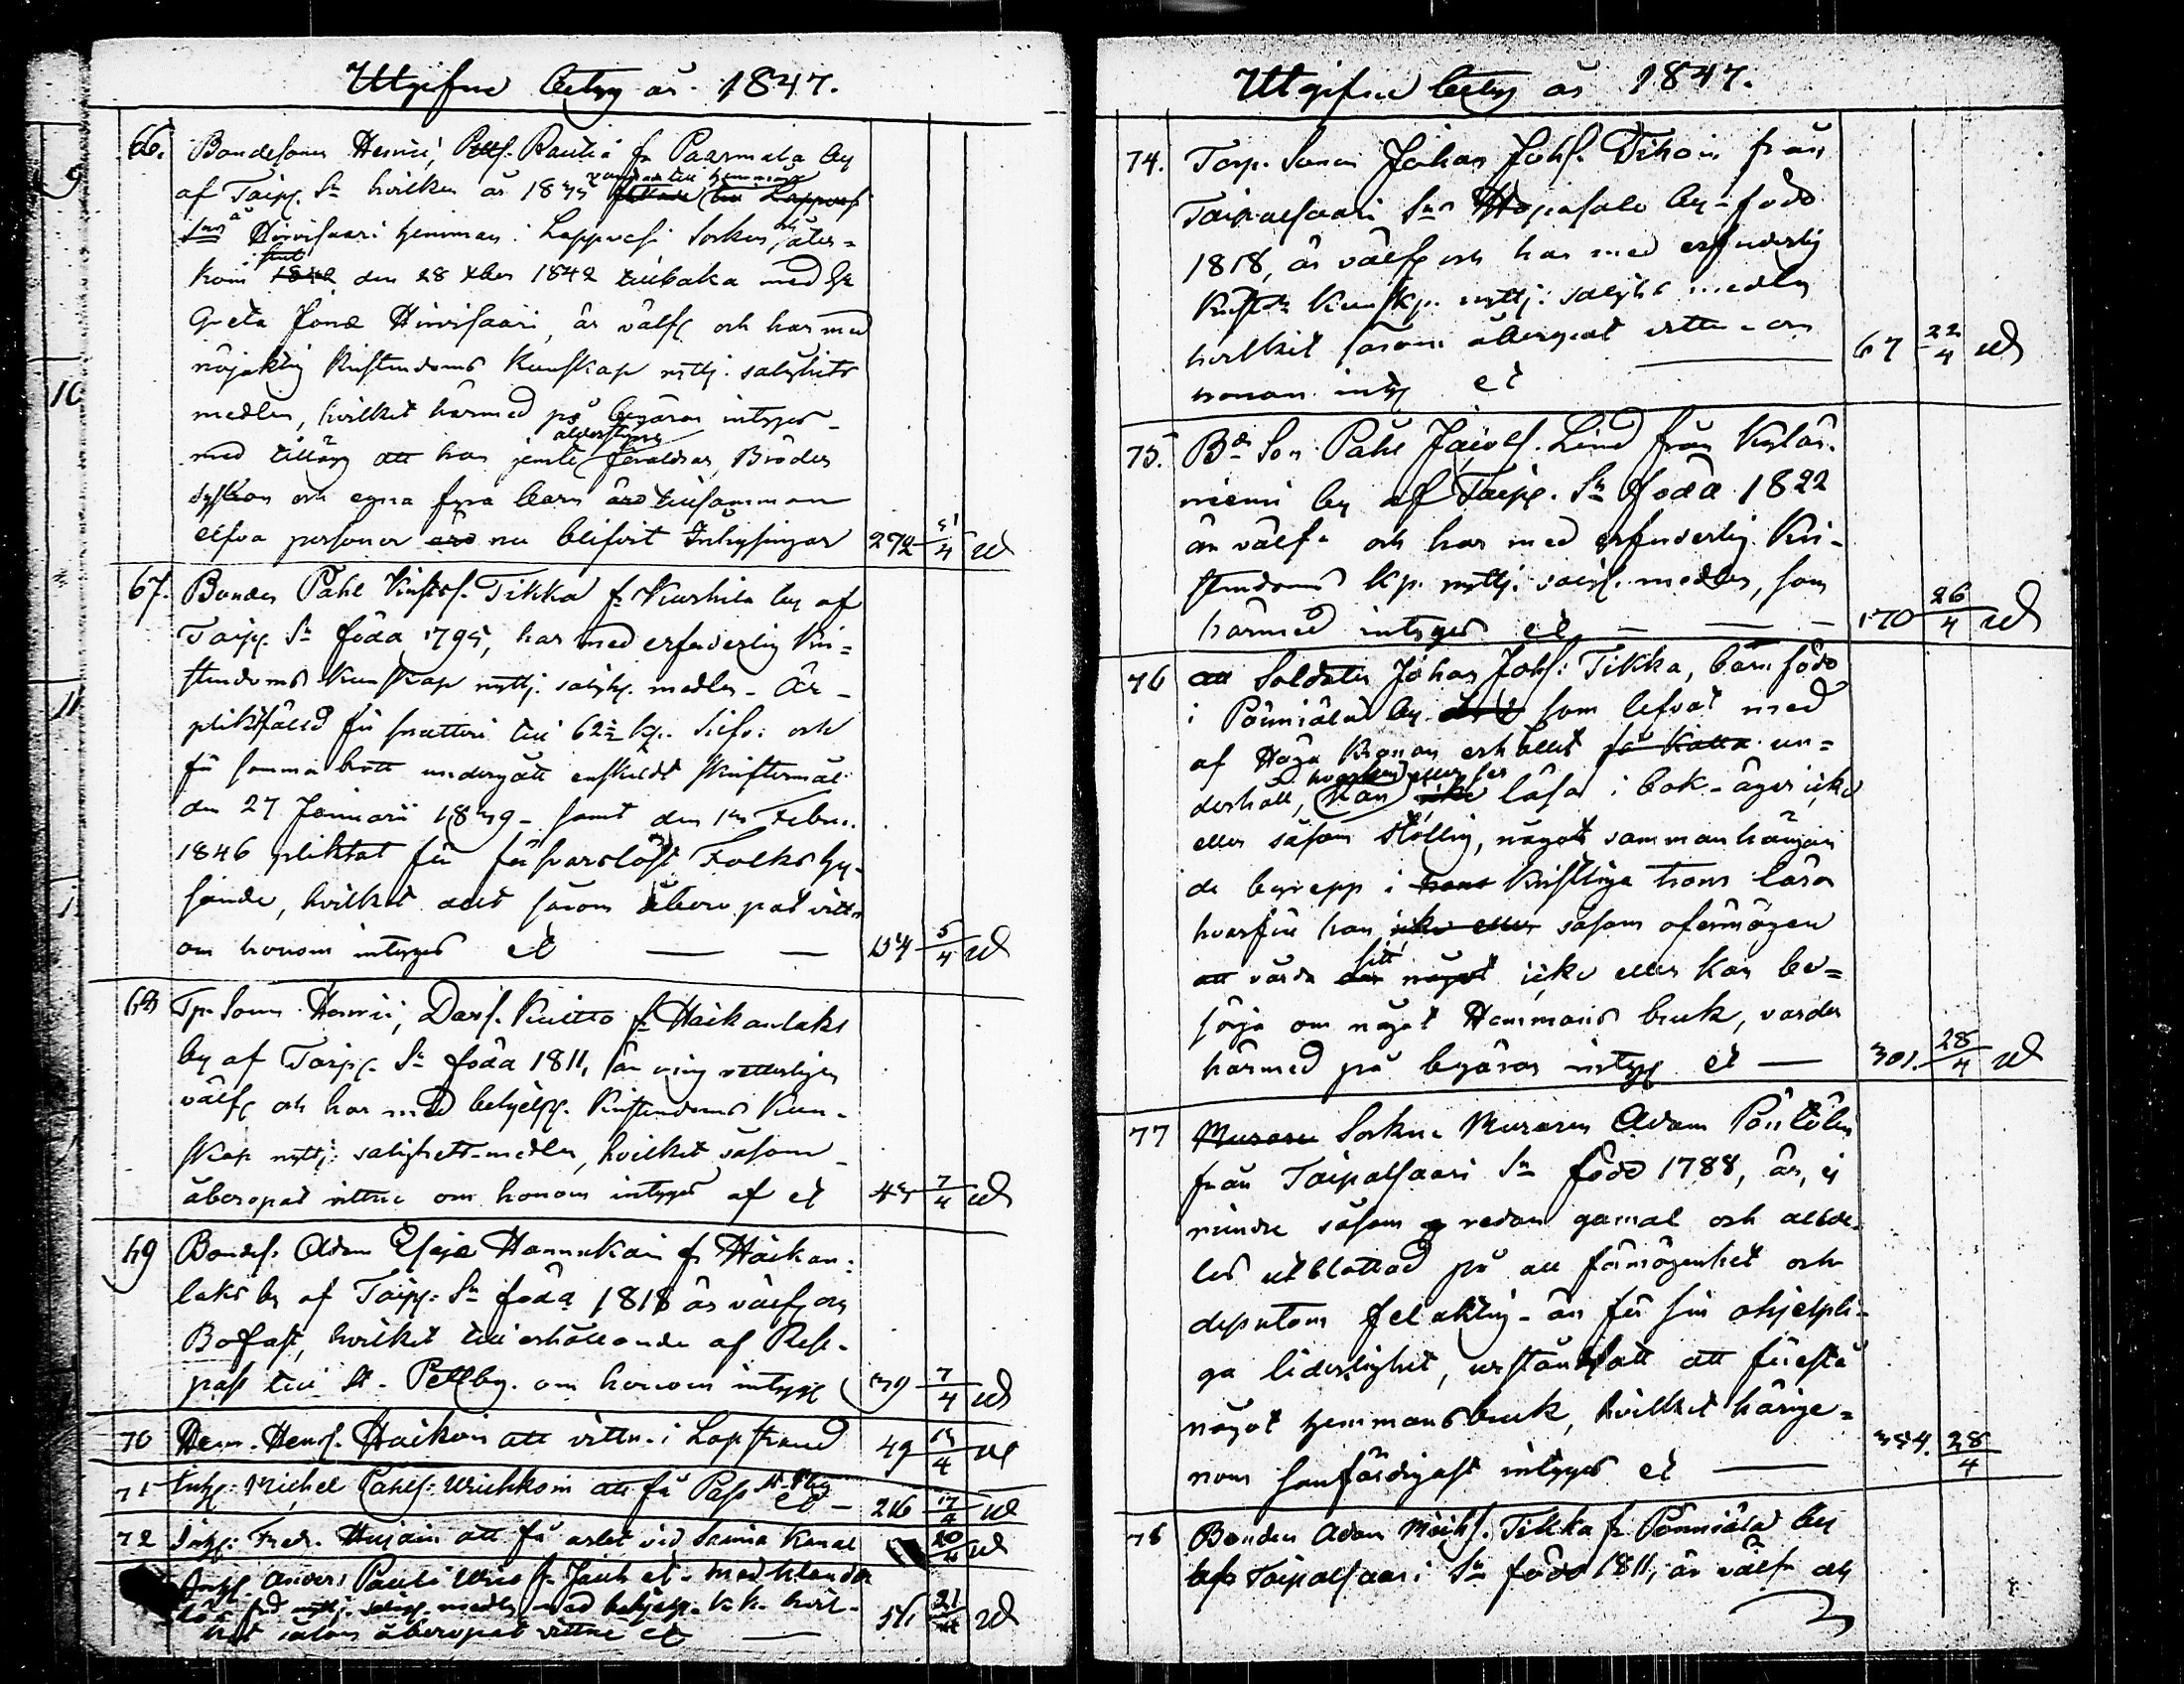 Utgifne betyg år 1847.
66. Bondesonen Henric Pettss. Rautia fr Paarmala by
af Taip. Sn hvilken år 1835 till hemman
Hirvisaari hemman i Lappvesi Socken och åter=
kom den 28 xber 1842 tillbaka med H
Greta Jonæ Hirvisaari, är välfr och har med
nöjaktig Kristendoms Kunskap nyttj. salighets
medlen, hvilket härmed på begäran intygas
med tillägg att han jemte ålderstigna föräldrar, Bröder
syskon och egna fyra barn tillsamman
elfva personer äro nu blifvit Inhysingar 272 4 ut
67. Bonden Påhl Tikka fr Kurhila by af
Taip. Sn född 1795, har med erforderlig Kri=
stendoms Kunskap nyttj. saligh. medlen. Är
pliktfälld för snatteri till 62½ kp. Silfv. och
för samma brott undergått enskildt skriftermål
den 27 Januari 1839 samt den Febru.
1846 pliktat för försvarslöst Folks hy-
sande, hvilket allt såsom åberopat vittne
om honom intygas et — — 154 5/4 ut
68 Tp. Sonen Henric Davss. Kuitto fr Haikanlaks
by af Taip. Sn född 1811, är mig vetterligen
välfr och har med behjelpl. Kristendoms Kun-
skap nyttj. salighets-medlen, hvilket såsom
åberopat vittne om honom intygas af et 45 7/4 ut
69 Bondes. Adam Esajæ Hannukain fr Haikan=
laks by af Taip. Sn född 1818 är välfr och
Bofast, hvilket till erhållande af Rese-
pass till St. Pettbg. om honom intygas 39 7/4 ut
70 Henr. Henss. Haikoin att vittn. i Lapstrand 49 4 ut
71 Inh. Michel Påhls. att få Pass St. Pbg et — 216 17/4 ut
72 Inh. Fredr. Husain att få arbet vid Saima Kanal 20/4 ut
Inh. Anders Pauli fr et. med
nyttj. saligh. medlen med behjelp. K. k. hvil-
ket såsom åberopat vittne et — 51 21 ut
Utgifne betyg år 1847.
74. Torp. Sonen Johan Johss. Tihoin från
Taipalsaari Sns Hopasalo by född
1818, är välfr och har med erforderlig
Kristds Kunskp. nyttj. saligh. medlen
hvilket såsom åberopat vittne om
honom intyg et — 67 22/4 ut
75. Bd Son Påhl Lind från Kylä-
niemi by af Taip. Sn född 1822
är välfr och har med erforderlig Kri-
stendoms kp. nyttj. saligh. medlen, som
härmed intygas et — — — 170 26/4 ut
76 Soldaten Johan Johs: Tikka, barnfödd
i Pönniälä by som lefvat med
af Höga Kronan erhållit un=
derhåll, kan läsa i bok äger icke
eller såsom stollig, något sammanhängan
de begrepp i Kristliga trons lära
hvarföre han såsom oförmögen
att vårda sitt icke eller kan be=
sörja om något Hemmans bruk, varder
härmed på begäran intyg et — 301. 28/4 ut
77 Sockne Muraren Adam Pöntölin
från Taipalsaari Sn född 1788, är, ej
mindre såsom redan gamal och allde-
les utblottad på all förmögenhet och
dessutom felaktig är för sin ohjelpli-
ga liderlighet, urståndsatt att förestå
något hemmansbruk, hvilket härige=
nom sanfärdigast intygas et — 354. 28/4
78 Bonden Adam Michs. Tikka fr Pönniälä by
af Taipalsaari Sn född 1811, är välfr och